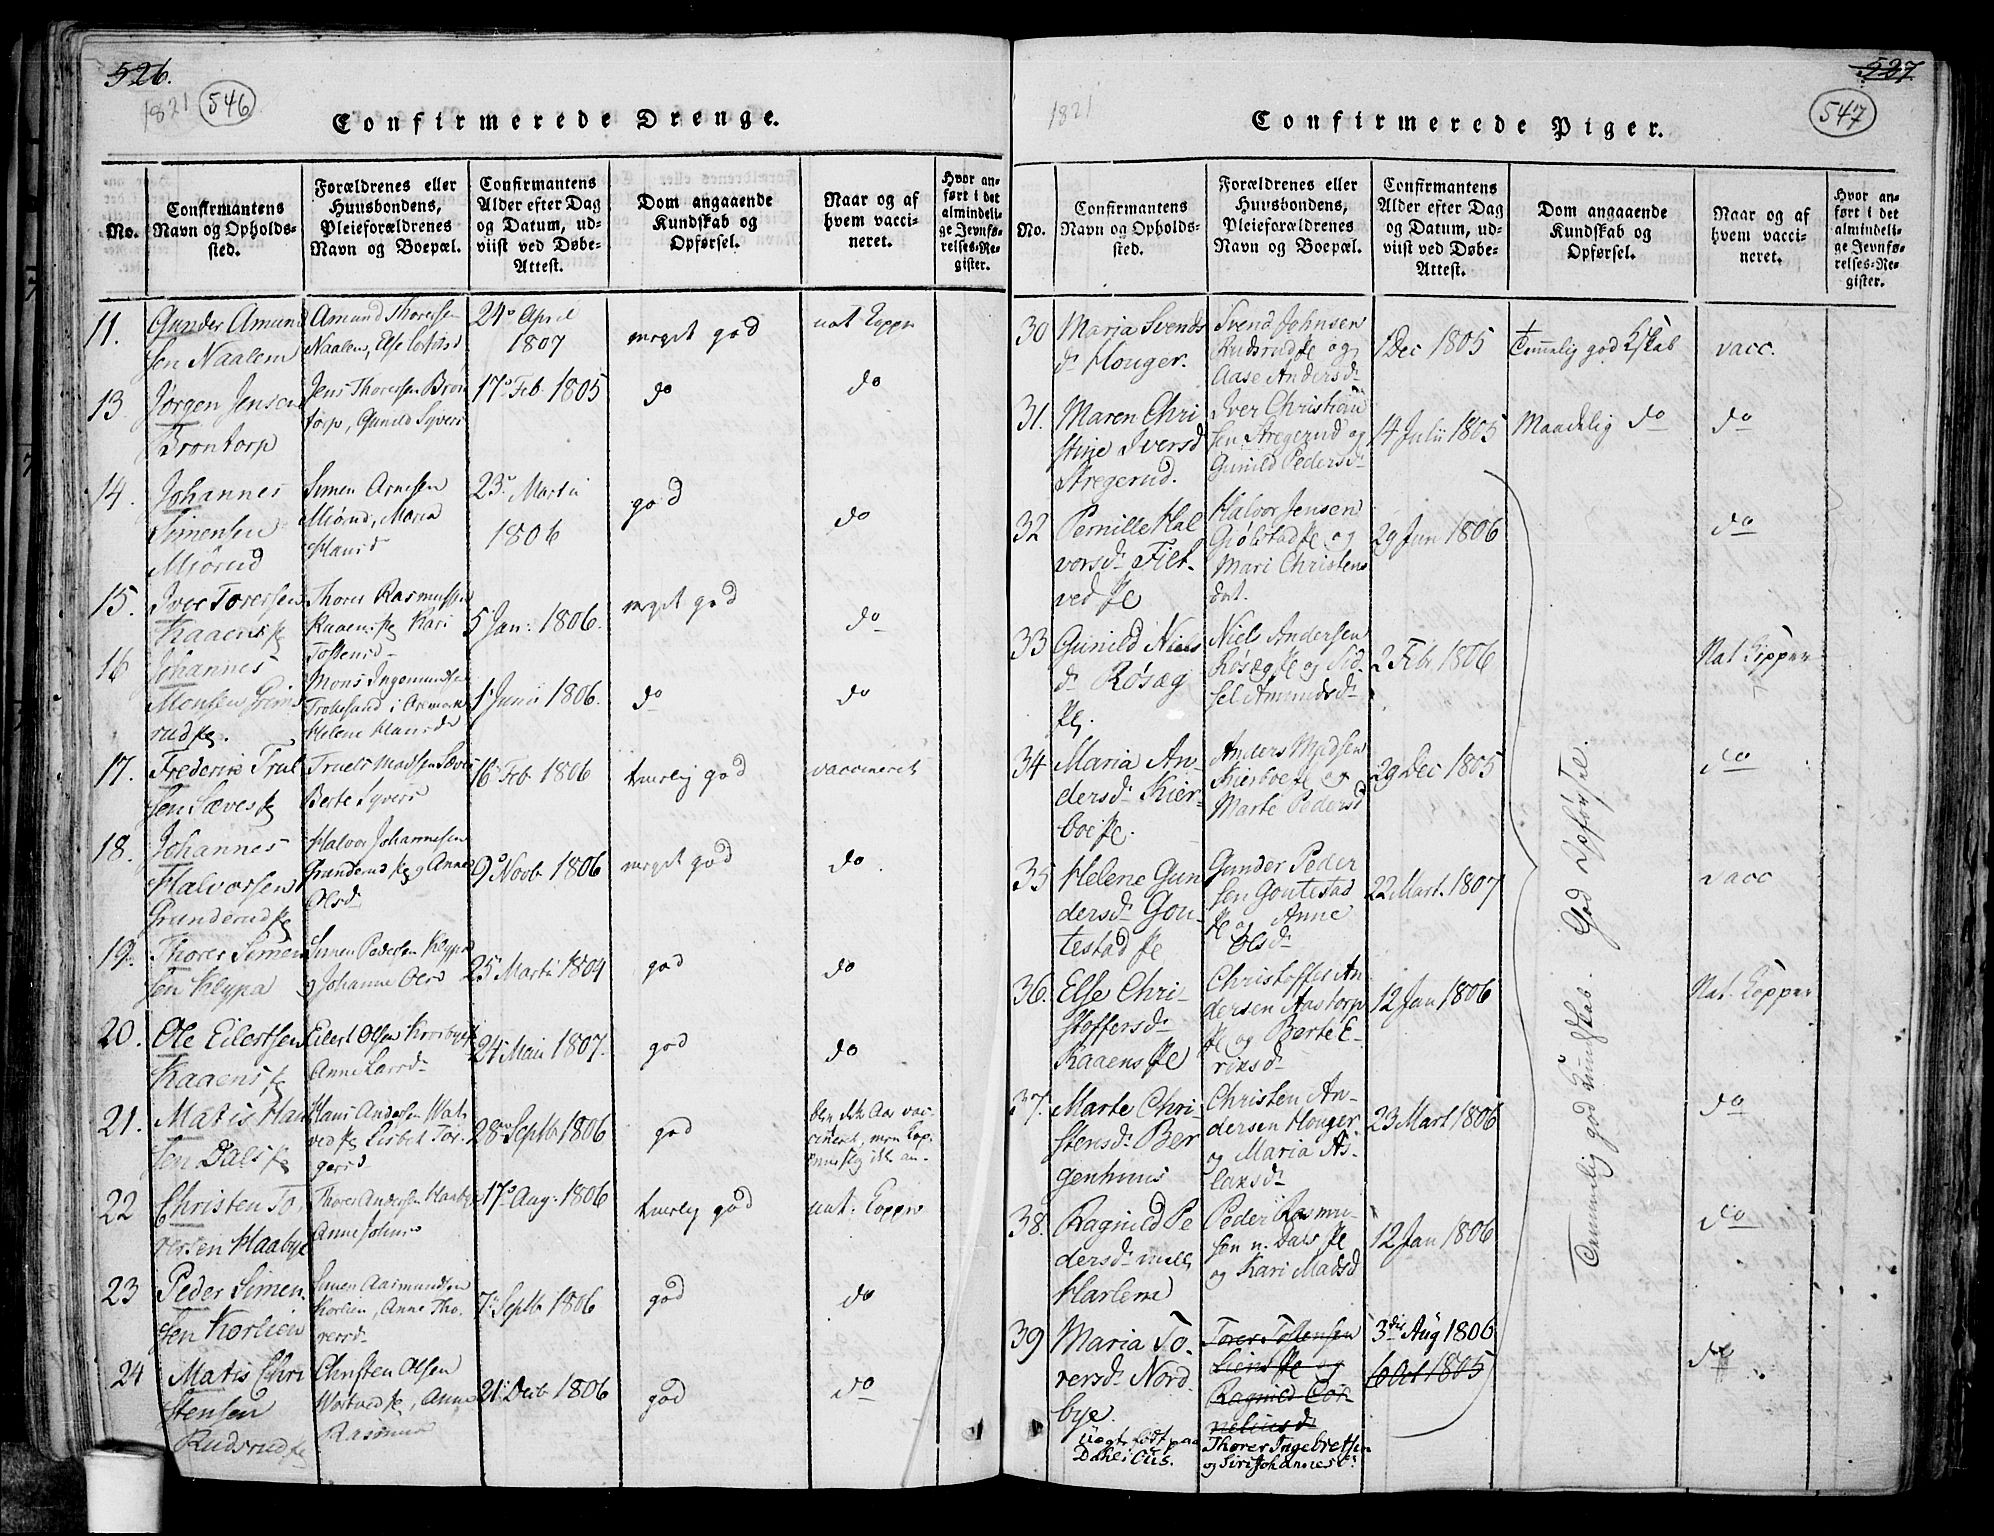 526.
1821 546
Confirmerede Drenge.
No.
Confirmantens
Navn og Opholds-
sted.
Forældrenes eller
Huusbondens,
Pleieforældrenes
Navn og Boepæl.
Confirmantens
Alder efter Dag
og Datum, ud-
viist ved Døbe-
Attest.
Dom angaaende
Kundskab og
Opførsel.
Naar og af
hvem vacci-
neret.
Hvor an-
ført i det
almindeli-
ge Jevnfø-
relses-Re-
gister.
11.
Gunder Amund
sen Naalem
Amund Thoresen
Naalem, Else
24 April
1807
meget god
nat Kopper
13.
Jørgen Jensen
Brontorp
Jens Thoresen Bron
torp, Gunild Syvers
17 Feb 1805
do
do
14.
Johannes
Simensen
Miørud
Simen Arnesen
Miørud, Maria
Hansd
23 Martii
1806
god
do
15.
Iver Toresen
Kaaens pl
Thorer Rasmussen
Kaaens pl Kari
Tostensd
5 Jan: 1806.
meget god
do
16
Johannes
Monsen Grims
rud pl.
Mons Ingemundsen
i Aremark
Helene Hansd
1 Junii 1806.
do
do
17.
Frederik Trul
sen Sæves pl
Truels Madsen Sæves
Berte Syvers
16 Feb 1806
god
vaccineret
18.
Johannes
Halvorsen
Grunderud pl
Halvor Johannesen
Grunderud pl og Anne
Olsd
9 Novb 1806
meget god
do
19.
Thorer Simen
sen Klypa
Simen Pedersen Klypa
og Johanne Olsd
25 Martii 1804
god
do
20.
Ole Eilertsen
Kaaens pl
Eilert Olsen
Anne Larsd
24 Maii 1807.
god
do
21.
Matis Han
sen Dals pl
Hans Andersen Wat
ved pl Lisbet Tor
gersd
28 Septb 1806
god
vac
cineret, men Kop
perne ikke an-
22
Christen To
resen Haabye
Thorer Andersen Haabye
Anne Johns
17 Aug. 1806
god
nat. Kopper
23
Peder Simen
sen Korlien
Simen Aasmundsen
Korlien, Anne Tho
rersd
7 Septb 1806
god
do
24
Matis Chri
stensen
Rudsrud pl
Christen Olsen
Watved pl, Anne
Rasmus
21 Decb 1806
god
do
527
547
1821
Confirmerede Piger.
No.
Confirmantens
Navn og Opholds-
sted.
Forældrenes eller
Huusbondens,
Pleieforældrenes
Navn og Boepæl.
Confirmantens
Alder efter Dag
og Datum, ud-
viist ved Døbe-
Attest.
Dom angaaende
Kundskab og
Opførsel.
Naar og af
hvem vacci-
neret.
Hvor an-
ført i det
almindeli-
ge Jevnfø-
relses-Re-
gister.
30
Maria Svends
d. Houger.
Svend Johnsen
Rudsrud pl og
Aase Andersd
1 Dec 1805
Temmelig god Kskab
vacc.
31.
Maren Chri
stine Iversd
Stregerud.
Iver Christian
sen Stregerud og
Gunild Pedersd
14 Julii 1805
Maadelig do
do
32
Pernille Hal
vorsd Filt
ved pl
Halvor Jensen
Giølstad pl og
Mari Christens
dat.
29 Jun 1806
do
33
Gunild Niels
d. Røsæg
pl.
Niels Andersen
Røsæg pl og Sid
sel Amundsd
2 Feb 1806
Nat Kopper
34
Maria An-
dersd Kier
boe pl.
Anders Madsen
Kierboe pl og
Marte Pedersd
29 Dec 1805
do
35
Helene Gun
dersd Gou
testad pl
Gunder Peder
sen Goutestad
pl og Anne
Olsd
22 Mart. 1807
vacc
36.
Else Chri-
stoffersd
Kaaens pl
Christoffer An
dersen Aastorp
pl og Berte E-
riksd
12 Jan 1806
Nat. Kopper
37.
Marte Chri-
stensd Ber
genhuus
Christen An-
dersen Houger
og Maria As-
laksd
23 Mart 1806
do
38.
Ragnild Pe
dersd mell.
Harlem
Peder Rasmu
sen n. Dals pl
og Kari Madsd
12 Jan 1806
do
39
Maria To-
rersd Nord
bye.
Uægte født paa
Dahl i Øis.
Torer Tostensen
Liens pl og
Ragnild Cor
neliusd
Thorer Ingebretsen
og Siri Johannesd:
3die Aug 1806
6 Oct 1805
do
Temmelig god Kundskab. God Opførsel.